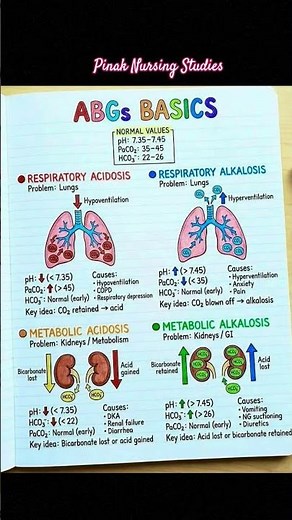 Pinak Nursing Studies
ABGs BASICS
NORMAL VALUES
pH: 7.35-7.45
PaCO₂: 35-45
HCO₃⁻: 22-26
RESPIRATORY ACIDOSIS
Problem: Lungs
Hypoventilation
pH: ↓ (< 7.35)
PaCO₂: ↑ (> 45)
HCO₃⁻: Normal (early)
Causes:
• Hypoventilation
• COPD
• Respiratory depression
Key idea: CO₂ retained → acid
RESPIRATORY ALKALOSIS
Problem: Lungs
CO₂ CO₂
Hyperventilation
pH: ↑ (> 7.45)
PaCO₂: ↓ (< 35)
HCO₃⁻: Normal (early)
Causes:
• Hyperventilation
• Anxiety
• Pain
Key idea: CO₂ blown off → alkalosis
METABOLIC ACIDOSIS
Problem: Kidneys / Metabolism
Bicarbonate lost
Acid gained
HCO₃⁻ HCO₃⁻
pH: ↓ (< 7.35)
HCO₃⁻: ↓ (< 22)
PaCO₂: Normal (early)
Causes:
• DKA
• Renal failure
• Diarrhea
Key idea: Bicarbonate lost or acid gained
METABOLIC ALKALOSIS
Problem: Kidneys / GI
Bicarbonate retained
Acid lost
pH: ↑ (> 7.45)
HCO₃⁻: ↑ (> 26)
PaCO₂: Normal (early)
Causes:
• Vomiting
• NG suctioning
• Diuretics
Key idea: Acid lost or bicarbonate retained